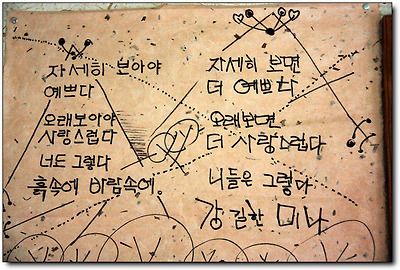 자세히 보아야
예쁘다
오래보아야
사랑스럽다
너도 그렇다
흙속에 바람속에.
자세히 보면
더 예쁘다
오래보면
더 사랑스럽다
니들은 그렇다
강 길한 미나